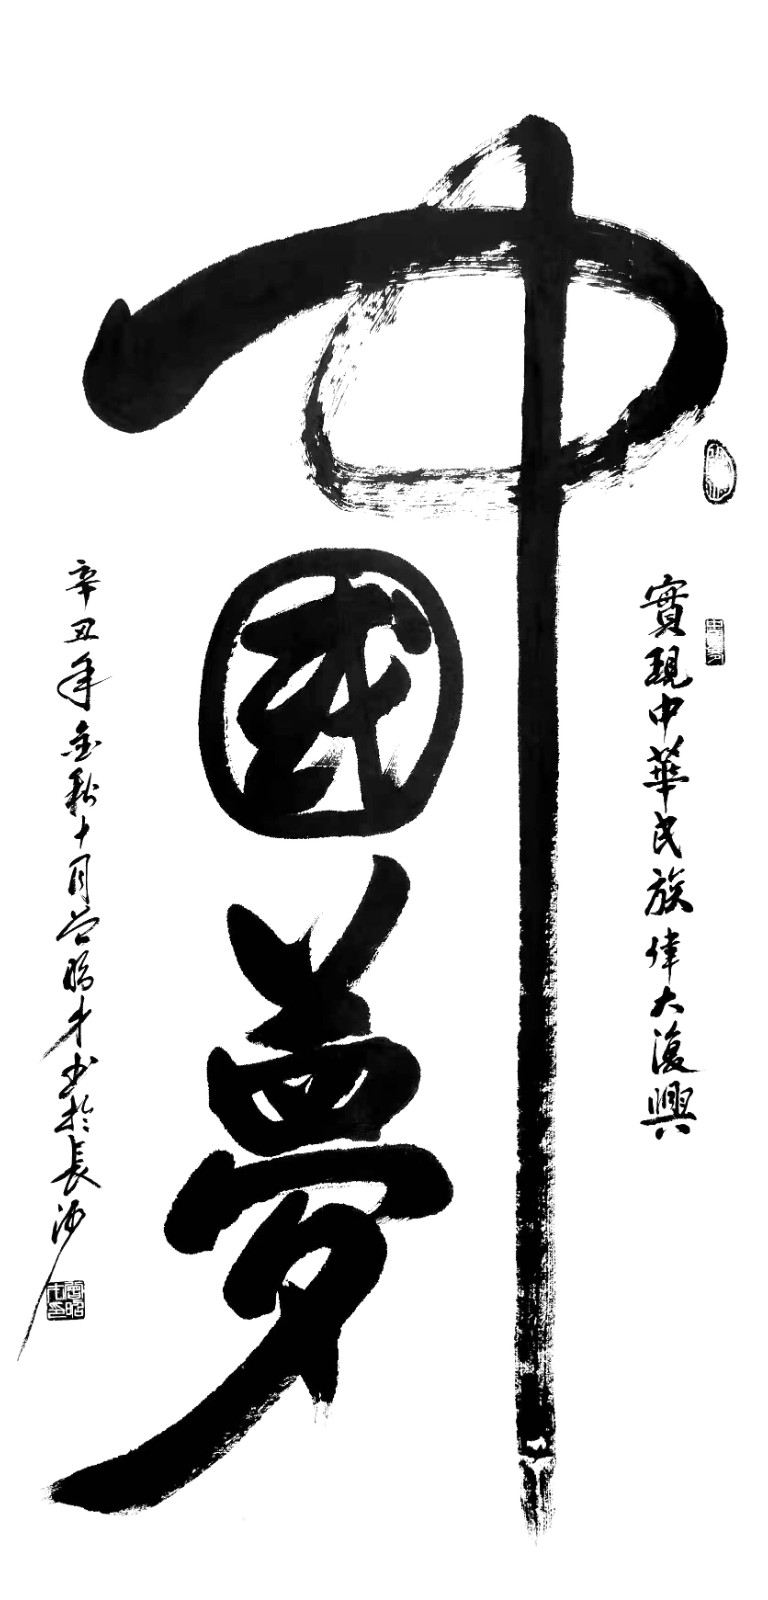 實現中華民族偉大復興
中國夢
辛丑年金秋十月曾昭才书於長沙